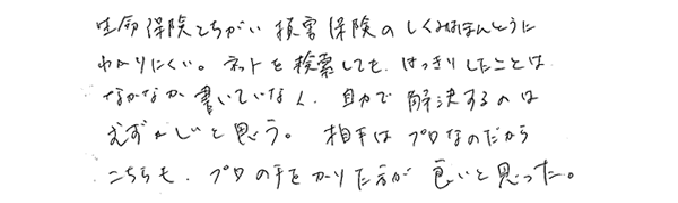 生命保険とちがい 損害保険のしくみはほんとうに
わかりにくい。ネットを検索しても、はっきりしたことは
なかなか書いていなく、自力で解決するのは
むずかしいと思う。相手はプロなのだから
こちらも、プロの手をかりた方が良いと思った。